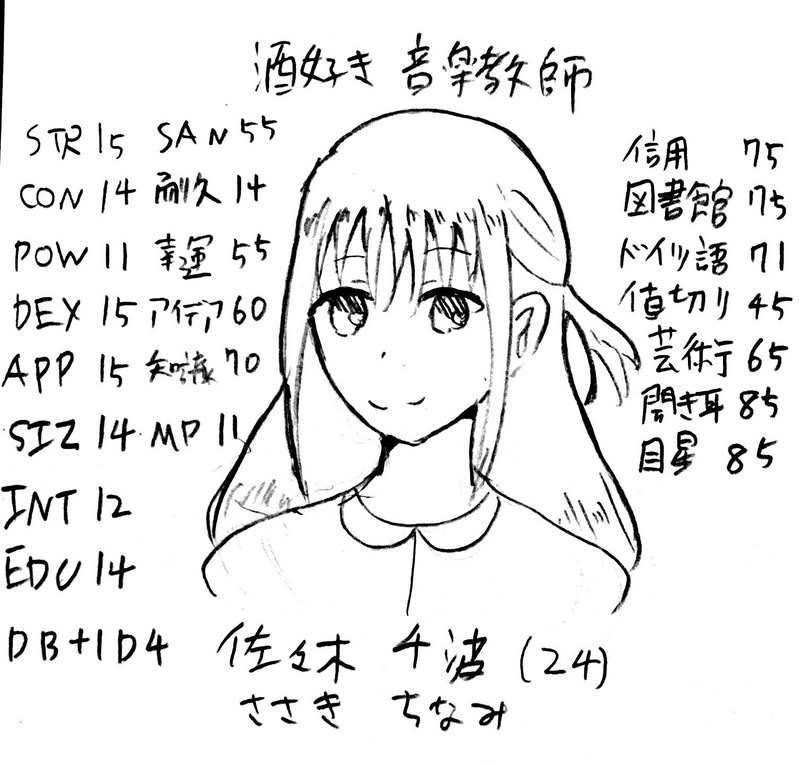 酒好き 音楽教師
STR 15 SAN 55
CON 14 耐久 14
POW 11 幸運 55
DEX 15 アイデア 60
APP 15 知識 70
SIZ 14 MP 11
INT 12
EDU 14
DB+1D4
信用 75
図書館 75
ドイツ語 71
値切り 45
芸術 65
聞き耳 85
目星 85
佐々木 千波 (24)
ささき ちなみ